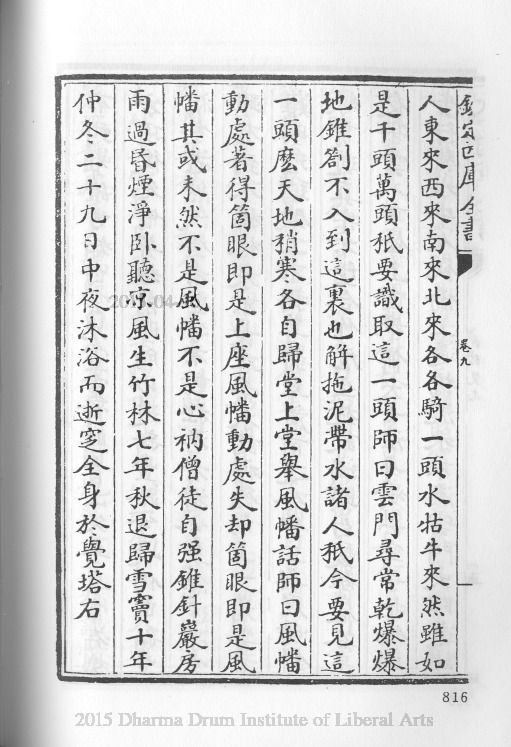 欽定四庫全書
卷九
人東來西來南來北來各各騎一頭水牯牛來然雖如
是千頭萬頭秖要識取這一頭師曰雲門尋常乾爆爆
地錐劄不入到這裏也解拖泥帶水諸人秖今要見這
一頭麽天地稍寒各自歸堂上堂舉風幡話師曰風幡
動處著得箇眼即是上座風幡動處失却箇眼即是風
幡其或未然不是風幡不是心衲僧徒自强錐針巖房
雨過昏煙淨卧聽凉風生竹林七年秋退歸雪竇十年
仲冬二十九日中夜沐浴而逝窆全身於覺塔右
816
2015 Dharma Drum Institute of Liberal Arts